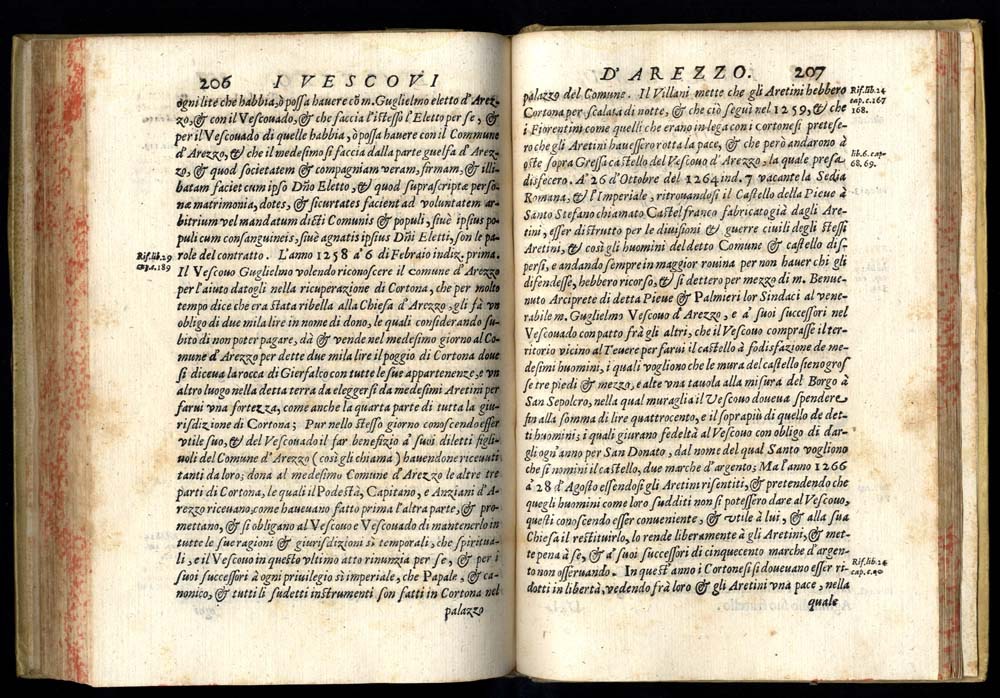 206 I VESCOVI
ogni lite che habbia, ò possa hauere cõ m. Guglielmo eletto d'Arez-
zo, & con il Vescouado, & che faccia l'istesso l'Eletto per se, &
per il Vescouado di quelle habbia, ò possa hauere con il Commune
d'Arezzo, & che il medesimo si faccia dalla parte guelfa d'Arez-
zo, & quod societatem & compagniam veram, firmam, & illi-
batam faciet cum ipso Dño Eletto, & quod suprascriptæ perso-
næ matrimonia, dotes, & sicurtates facient ad voluntatem ar-
bitrium vel mandatum dicti Comunis & populi, siuè ipsius po-
puli cum consanguineis, siuè agnatis ipsius Dñi Eletti, son le pa-
role del contratto. L'anno 1258 a' 6 di Febraio indiz. prima.
Rif. lib. 29
cap. c. 189
Il Vescouo Guglielmo volendo riconoscere il comune d'Arezzo
per l'aiuto datogli nella ricuperazione di Cortona, che per molto
tempo dice che era stata ribella alla Chiesa d'Arezzo, gli fà vn
obligo di due mila lire in nome di dono, le quali considerando su-
bito di non poter pagare, dà & vende nel medesimo giorno al Co-
mune d'Arezzo per dette due mila lire il poggio di Cortona doue
si diceua la rocca di Gierfalco con tutte le sue appartenenze, e vn
altro luogo nella detta terra da eleggersi da medesimi Aretini per
farui vna fortezza, come anche la quarta parte di tutta la giu-
risdizione di Cortona; Pur nello stesso giorno conoscendo esser
vtile suo, & del Vescouado il far benefizio à suoi diletti figli-
uoli del Comune d'Arezzo (così gli chiama) hauendone riceuuti
tanti da loro; dona al medesimo Comune d'Arezzo le altre tre
parti di Cortona, le quali il Podestà, Capitano, e Anziani d'A-
rezzo riceuano, come haueuano fatto prima l'altra parte, & pro-
mettano, & si obligano al Vescouo e Vescouado di mantenerlo in
tutte le sue ragioni & giurisdizioni sì temporali, che spiritua-
li, e il Vescouo in questo vltimo atto rinunzia per se, & per i
suoi successori à ogni priuilegio sì imperiale, che Papale, & ca-
nonico, & tutti li sudetti instrumenti son fatti in Cortona nel
palazzo
D'AREZZO. 207
palazzo del Comune. Il Villani mette che gli Aretini hebbero
Cortona per scalata di notte, & che ciò seguì nel 1259, & che
i Fiorentini come quelli che erano in lega con i cortonesi pretese-
ro che gli Aretini hauessero rotta la pace, & che però andarono à
oste sopra Gressa castello del Vescouo d'Arezzo, la quale presa
disfecero. A' 26 d'Ottobre del 1264 ind. 7 vacante la Sedia
Romana, & l'Imperiale, ritrouandosi il Castello della Pieue à
Santo Stefano chiamato Castelfranco fabricato già dagli Are-
tini, esser distrutto per le diuisioni & guerre ciuili degli stessi
Aretini, & così gli huomini del detto Comune & castello dis-
persi, e andando sempre in maggior rouina per non hauer chi gli
difendesse, hebbero ricorso, & si dettero per mezzo di m. Benue-
nuto Arciprete di detta Pieue & Palmieri lor Sindaci al vene-
rabile m. Guglielmo Vescouo d'Arezzo, e a' suoi successori nel
Vescouado con patto frà gli altri, che il Vescouo comprasse il ter-
ritorio vicino al Teuere per farui il castello à sodisfazione de me-
desimi huomini, i quali vogliono che le mura del castello sieno gros
se tre piedi & mezzo, e alte vna tauola alla misura del Borgo à
San Sepolcro, nella qual muraglia il Vescouo doueua spendere
fin alla somma di lire quattrocento, e il soprapiù di quello de det-
ti huomini; i quali giurano fedeltà al Vescouo con obligo di dar-
gli ogn'anno per San Donato, dal nome del qual Santo vogliono
che si nomini il castello, due marche d'argento; Ma l'anno 1266
a' 28 d'Agosto essendosi gli Aretini risentiti, & pretendendo che
quegli huomini come loro sudditi non si potessero dare al Vescouo,
questi conoscendo esser conueniente, & vtile à lui, & alla sua
Chiesa il restituirlo, lo rende liberamente à gli Aretini, & met-
te pena à se, & a' suoi successori di cinquecento marche d'argen-
to non osseruando. In quest'anno i Cortonesi si doueuano esser ri-
dotti in libertà, vedendo frà loro & gli Aretini vna pace, nella
quale
Rif. lib. 24
cap. c. 167
168.
lib. 6. cap.
68. 69.
Rif. lib. 24
cap. c. 40